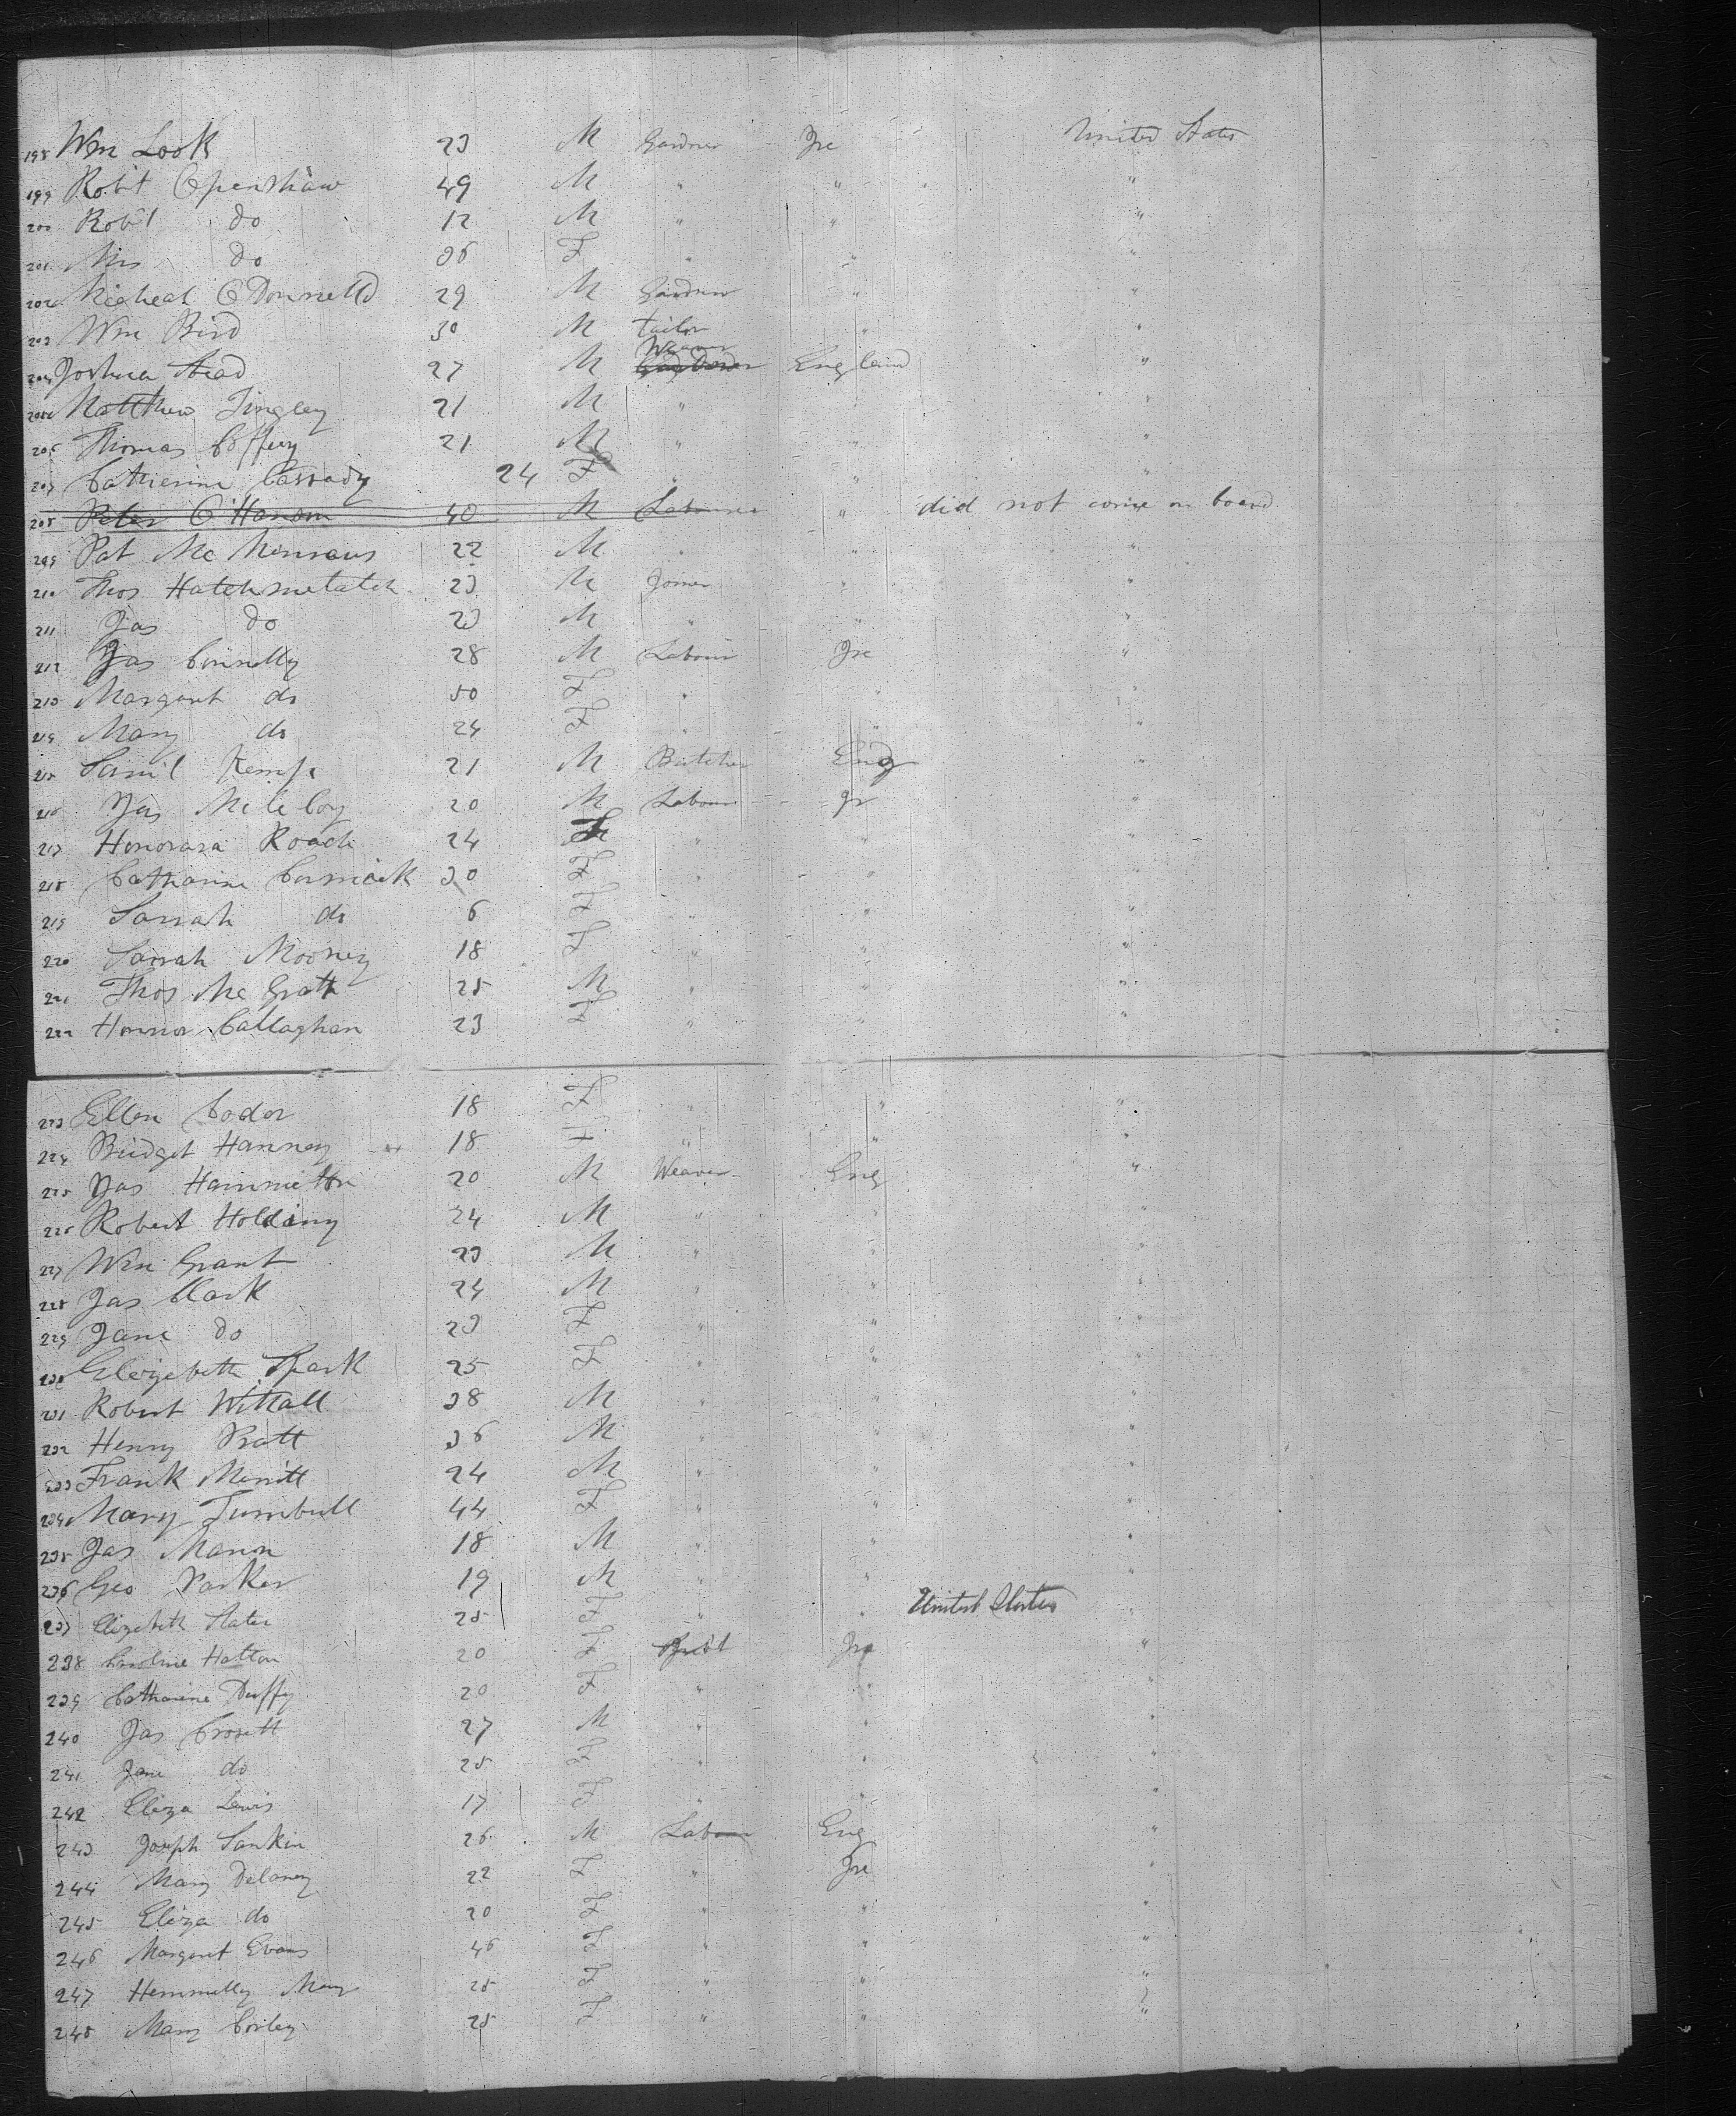 198 Wm Look 23 M Gardner Ire United States
199 Robt Openshaw 49 M " " "
200 Robt do 12 M " " "
201 Mrs do 36 F " " "
202 Micheal O Donnell 29 M Gardner " "
203 Wm Bird 30 M tailor " "
204 Joshua Stead 27 M Weaver England "
205 Matthew Tingley 21 M " " "
206 Thomas Coffery 21 M " " "
207 Catherine Cassady 24 F " " "
208 Peter O'Hanom 40 M Labourer " did not come on board
209 Pat Mc 22 M " " "
210 Thos 23 M Joiner " "
211 Jas do 23 M " " "
212 Jas Connelly 28 M Labour Ire "
213 Margaret do 50 F " " "
214 Mary do 24 F " " "
215 Saml Kemp 21 M Butcher Eng "
216 Jas 20 M Labour Ir "
217 Honorara Roach 24 F " " "
218 Catharine Cormick 30 F " " "
219 Sarrah do 6 F " " "
220 Sarrah Mooney 18 F " " "
221 Thos Mc Grath 25 M " " "
222 Honnor Callaghan 23 F " " "
223 Ellen Coder 18 F " " "
224 Bridget Hanney 18 F " " "
225 Jas 20 M Weaver Eng "
226 Robert Holding 24 M " " "
227 Wm Grant 23 M " " "
228 Jas Clark 24 M " " "
229 Jane do 23 F " " "
230 Elezebeth Spark 25 F " " "
231 Robert Wittall 38 M " " "
232 Henry Pratt 36 M " " "
233 Frank Merritt 24 M " " "
234 Mary Turnbull 44 F " " "
235 Jas Mason 18 M " " "
236 Geo Parker 19 M " " "
237 Elizebeth Slater 25 F " " United States "
238 Caroline Hatton 20 F Ire "
239 Catharine Duffy 20 F " " "
240 Jas Crosett 27 M " " "
241 Jane do 25 F " " "
242 Eliza Lewis 17 F " " "
243 Joseph Sankin 26 M Labour Eng "
244 Mary Delaney 22 F " Ire "
245 Eliza do 20 F " " "
246 Margaret Evans 46 F " " "
247 Hemmelly Mary 25 F " " "
248 Mary Corley 25 F " " "